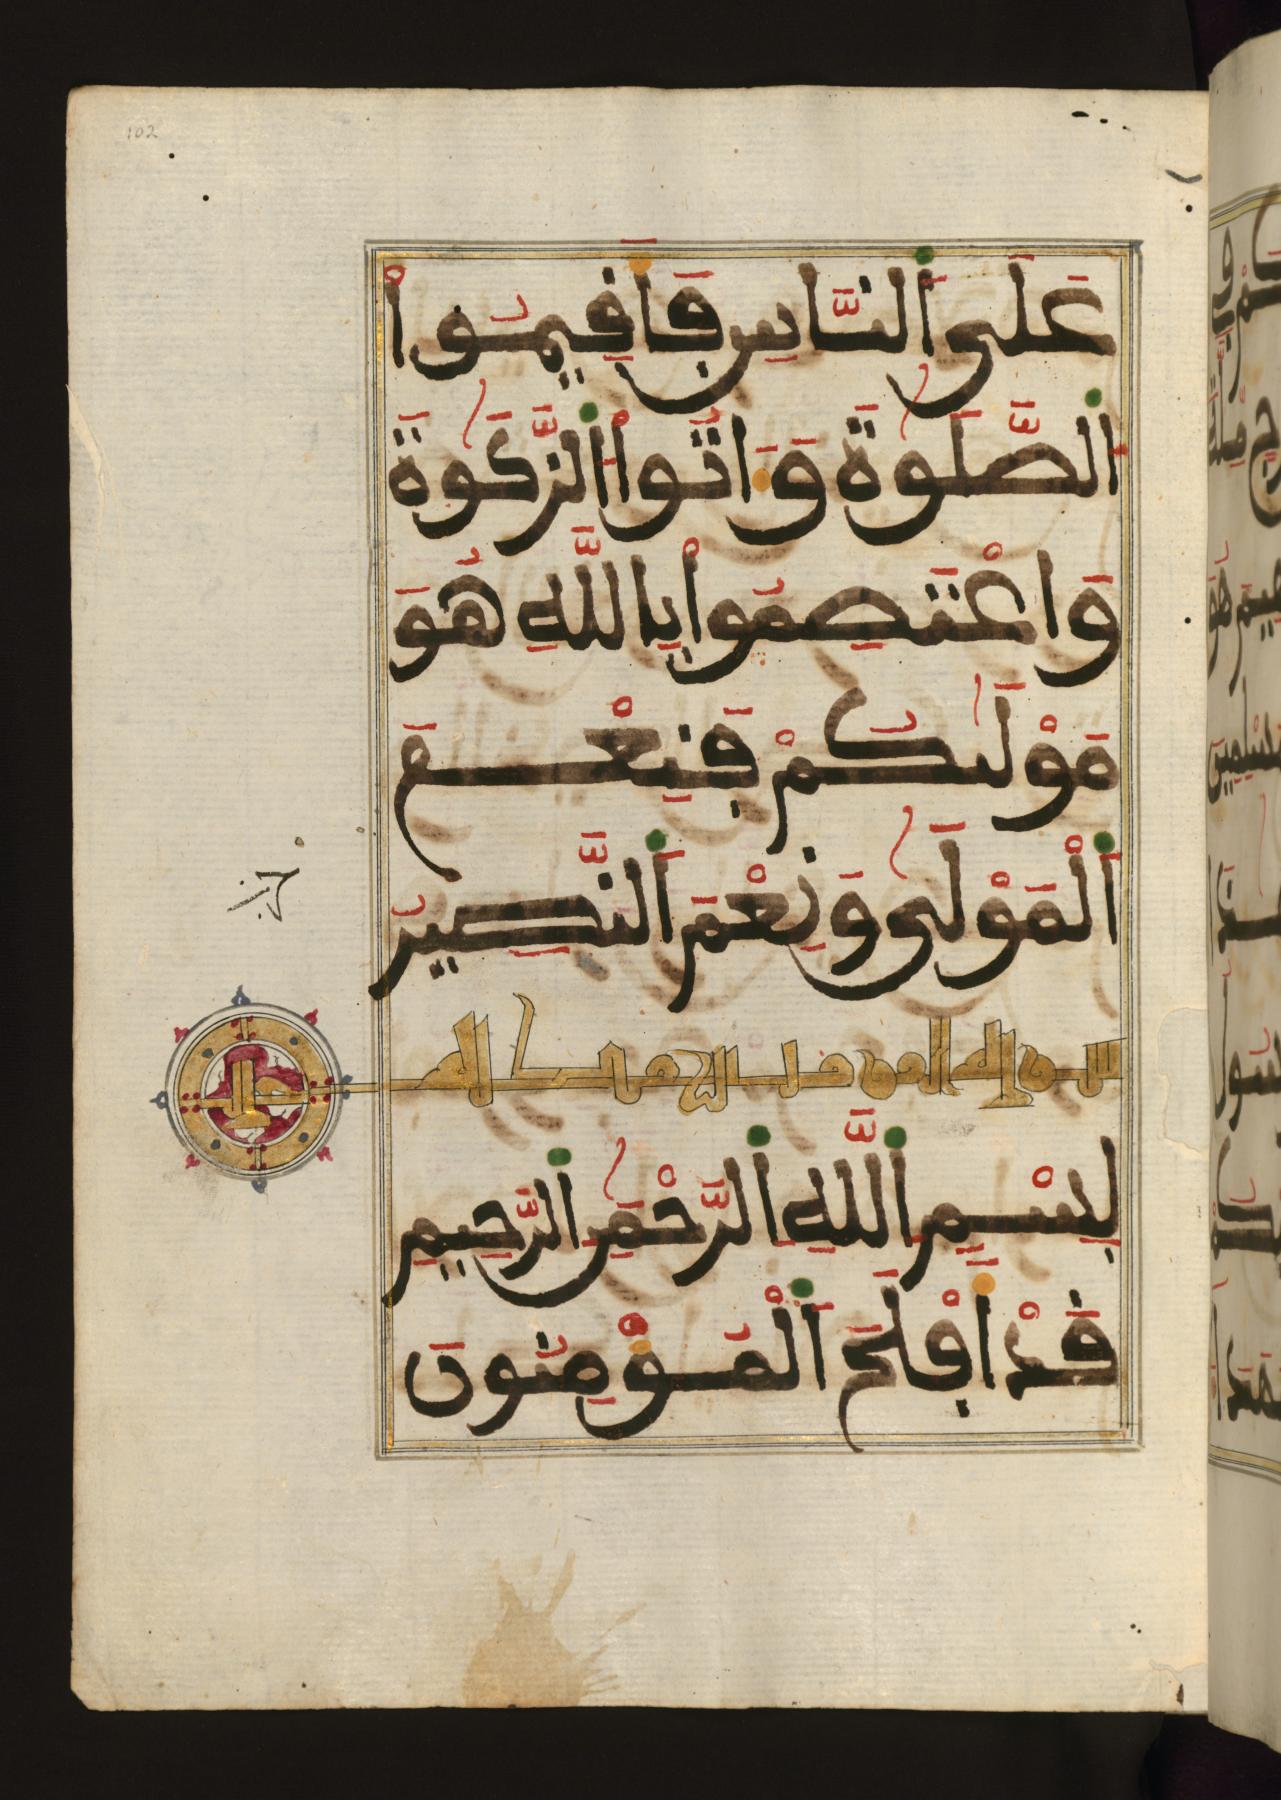 102
عَلَى اَلنَّاسِ فَأَقِيمُواْ
اَلصَّلَوٰةَ وَءَاتُواْ اَلزَّكَوٰةَ
وَاعْتَصِمُواْ بِاللَّهِ هُوَ
مَوْلَىٰكُمْ فَنِعْمَ
اَلْمَوْلَىٰ وَنِعْمَ اَلنَّصِيرُ
بِسْمِ اِللَّهِ اِلرَّحْمَٰنِ اِلرَّحِيمِ
قَدْ أَفْلَحَ اَلْمُؤْمِنُونَ